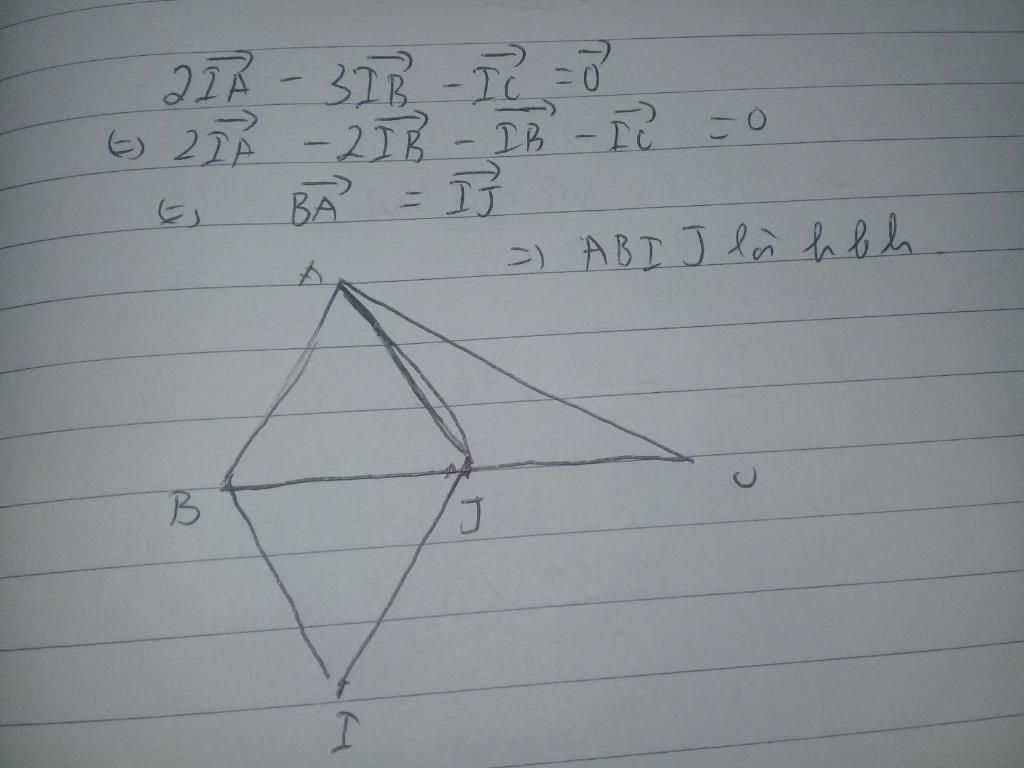 2\overrightarrow{IA} - 3\overrightarrow{IB} - \overrightarrow{IC} = \overrightarrow{0}
(=) 2\overrightarrow{IA} - 2\overrightarrow{IB} - \overrightarrow{IB} - \overrightarrow{IC} = 0
(=) \overrightarrow{BA} = \overrightarrow{IJ}
=) ABIJ là hbh.
A
B
J
C
I